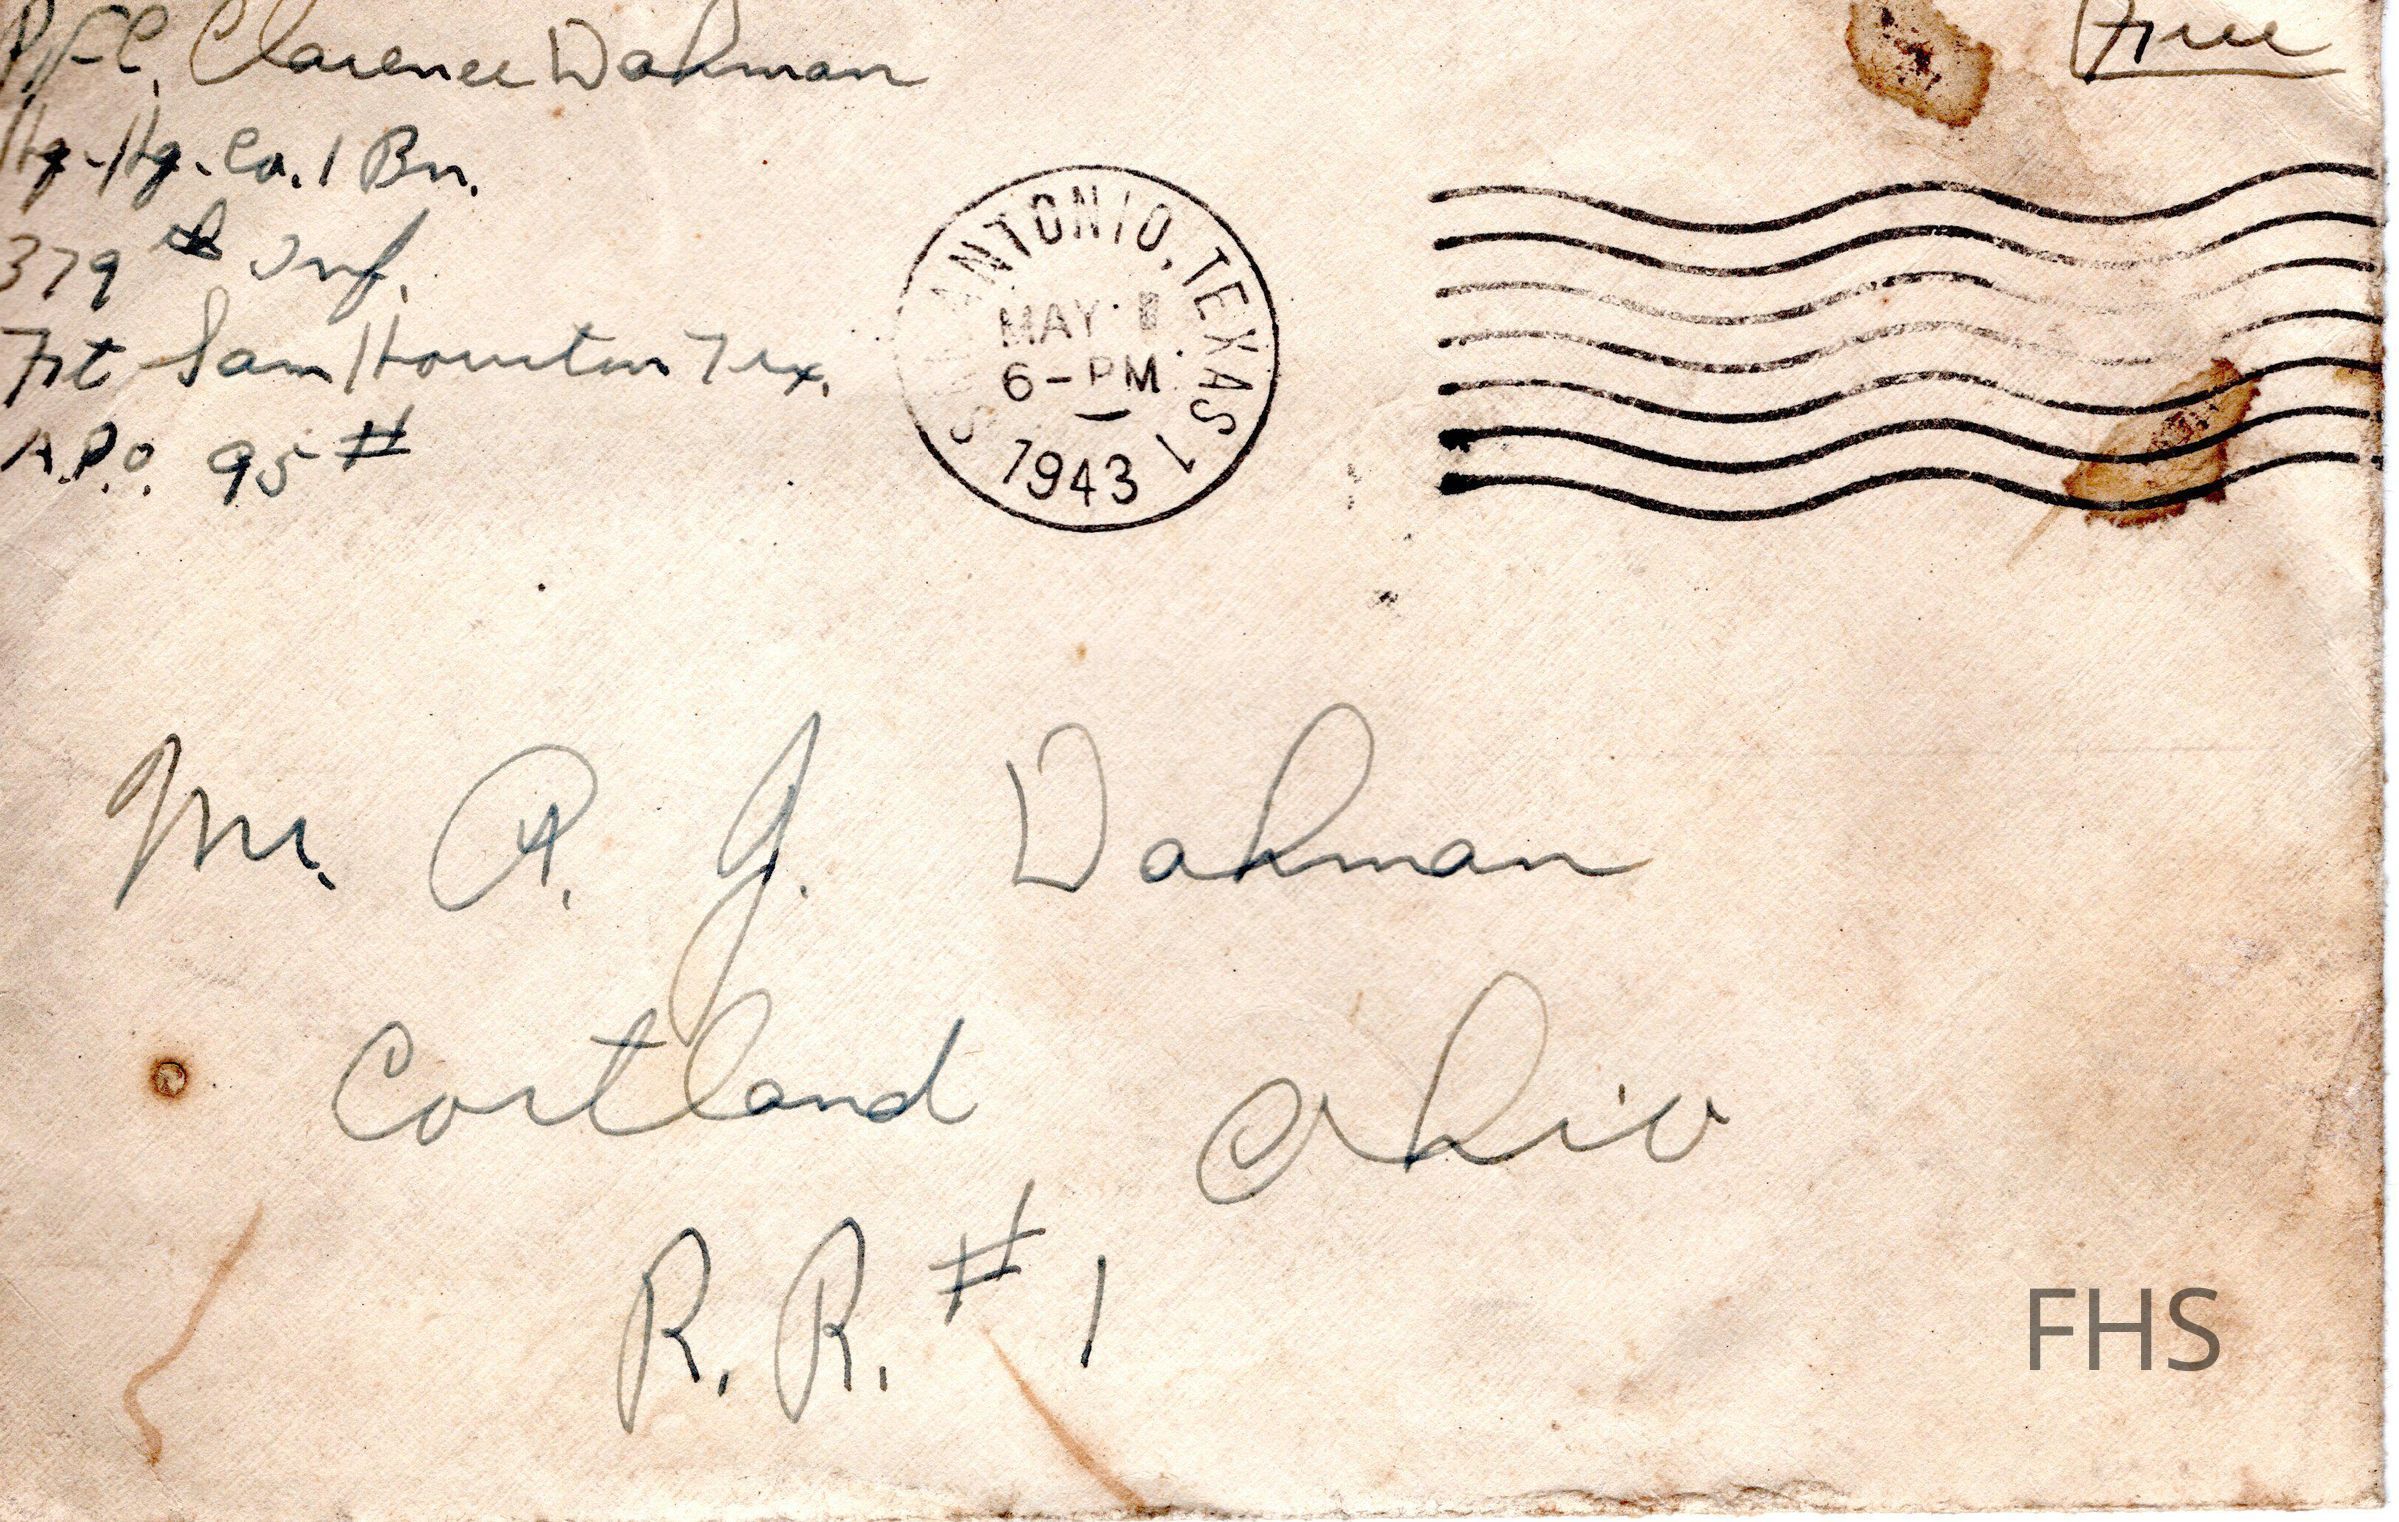 Pfc. Clarence Dahman
Hq-Hq. Co. 1 Bn.
379th Inf.
Frt Sam Houston Tex.
A.P.O. 95#
Free
SAN ANTONIO, TEXAS 1
MAY
6-PM
1943
Mr. A. J. Dahman
Cortland Ohio
R. R. # 1
FHS